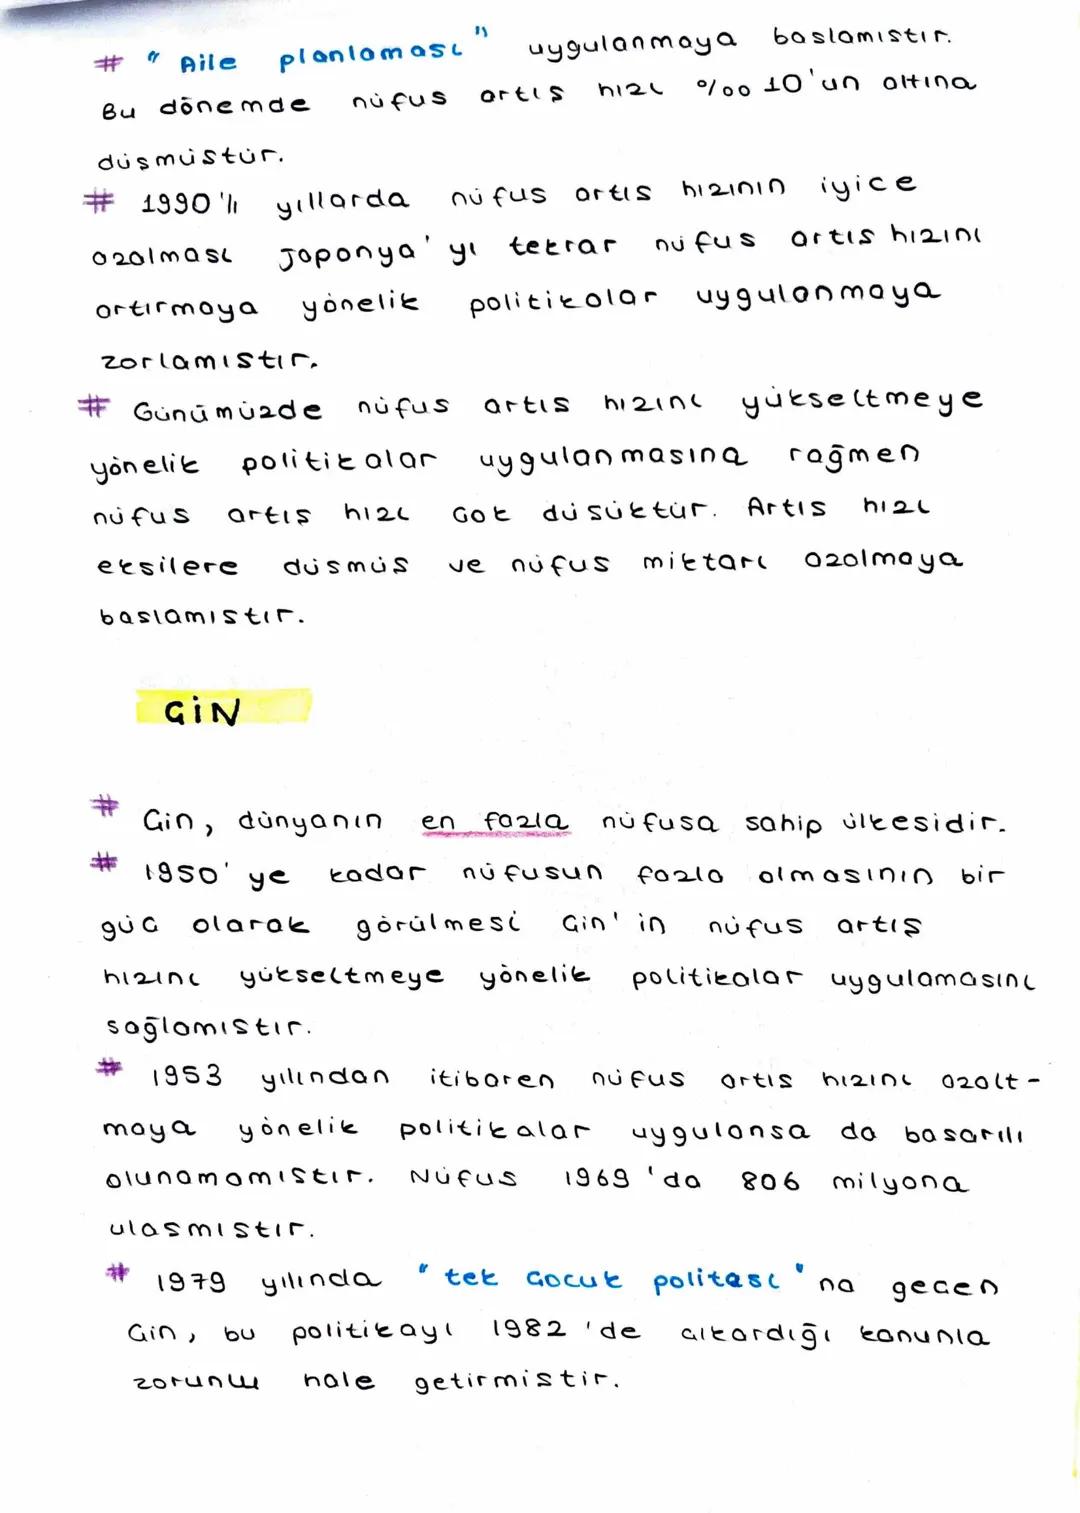 # "Aile planlaması" uygulanmaya başlamıştır.
Bu dönemde nüfus artış hızı %00 10'un altına
düşmüştür.
# 1990'lı yıllarda nüfus artış hızının iyice
azalması Japonya'yı tekrar nüfus artış hızını
artırmaya yönelik politikalar uygulanmaya
zorlamıştır.
# Günümüzde nüfus artış hızını yükseltmeye
yönelik politikalar uygulanmasına rağmen
nüfus artış hızı çok düşüktür. Artış hızı
eksilere düşmüş ve nüfus miktarı azalmaya
başlamıştır.
ÇİN
# Çin, dünyanın en fazla nüfusa sahip ülkesidir.
# 1950'ye kadar nüfusun fazla olmasının bir
güç olarak görülmesi Çin'in nüfus artış
hızını yükseltmeye yönelik politikalar uygulamasını
sağlamıştır.
# 1953 yılından itibaren nüfus artış hızını azalt-
maya yönelik politikalar uygulansa da başarılı
olunamamıştır. Nüfus 1969'da 806 milyona
ulaşmıştır.
# 1979 yılında "tek çocuk politası"na geçen
Çin, bu politikayı 1982'de çıkardığı kanunla
zorunlu hale getirmiştir.